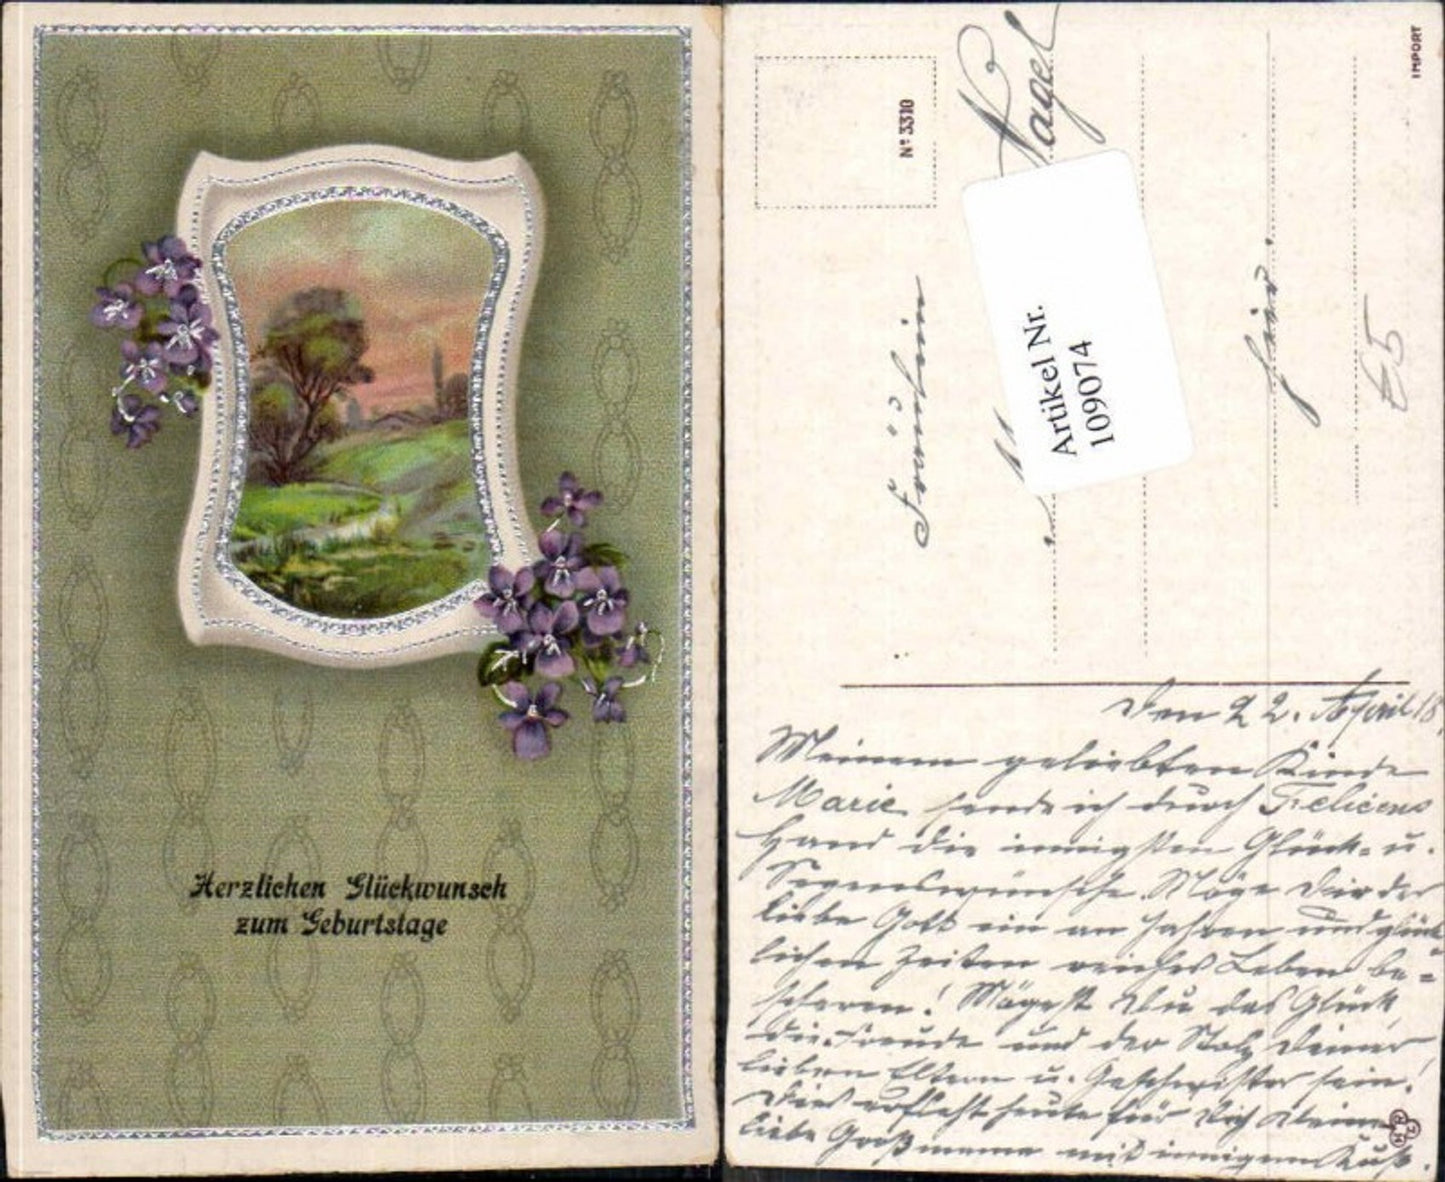 Herzlichen Glückwunsch
zum Geburtstage
IMPORT
Nº 3310
Nagel
Artikel Nr.
109074
Fräulein
hier.
€5
Den 22. April 18.
Meinem geliebten Kinde
Marie sende ich durch Feliciens
Hand die innigsten Glück- u.
Segenswünsche. Möge Dir der
liebe Gott ein an Jahren und glück
lichen Zeiten reiches Leben be=
scheren! Mögest Du das Glück,
die Freude und der Stolz Deiner
lieben Eltern u. Geschwister sein!
Dies erfleht heute für Dich Deine
liebe Großmama mit innigem Kuß.